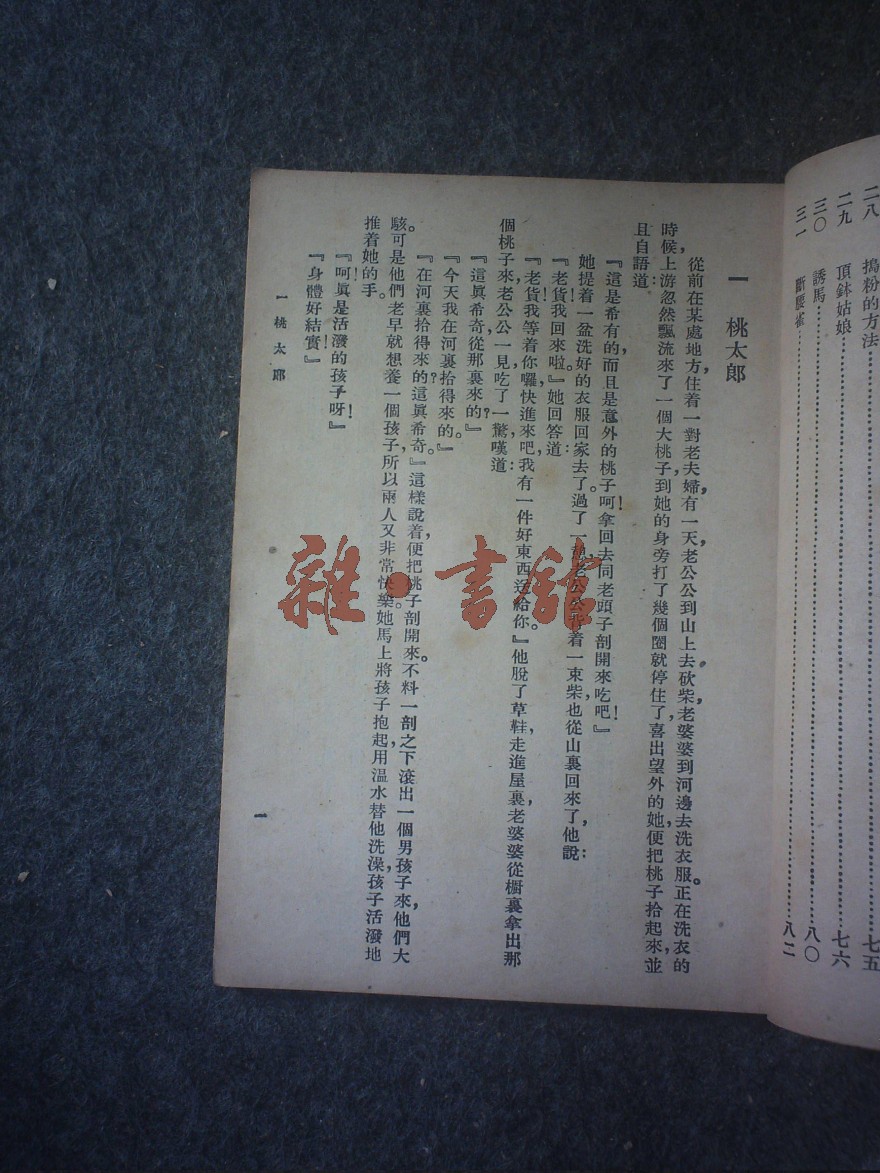 二八 搗粉的方法……七五
二九 頂鉢姑娘……七六
三〇 誘馬……八〇
三一 斷腰雀……八二
一 桃太郎
從前在某處地方,住着一對老夫婦,有一天,老公公到山上去砍柴,老婆婆到河邊去洗衣服。正在洗衣的
時候,上游忽然飄流來了一個大桃子,到她的身旁打了幾個圈就停住了,喜出望外的她,便把桃子拾起來,並
且自語道:
『這是希有的,而且是意外的桃子呵!拿回去同老頭子剖開來吃吧!』
她提着一盆洗好的衣服回家去了。過了一,老公公背着一束柴,也從山裏回來了,他說:
『老貨!我回來啦。』她回答道:
『老貨!我等着你囉,快進來吧,我有一件好東西送給你。』他脫了草鞋,走進屋裏,老婆婆從櫥裏拿出那
個桃子來,老公公一見,吃了一驚,嘆道:
『這眞希奇,從那裏來的?』
『今天我在河裏拾得來的。』
『在河裏拾得來的?這眞希奇。』這樣說着,便把桃子剖開來。不料一剖之下,滾出一個男孩子來,他們大
駭。可是他們老早就想養一個孩子,所以兩人又非常快樂。她馬上將孩子抱起,用溫水替他洗澡,孩子活潑地
推着她的手。
『呵!眞是活潑的孩子呀!』
『身體好結實!』
一 桃太郎
一
雜·書館